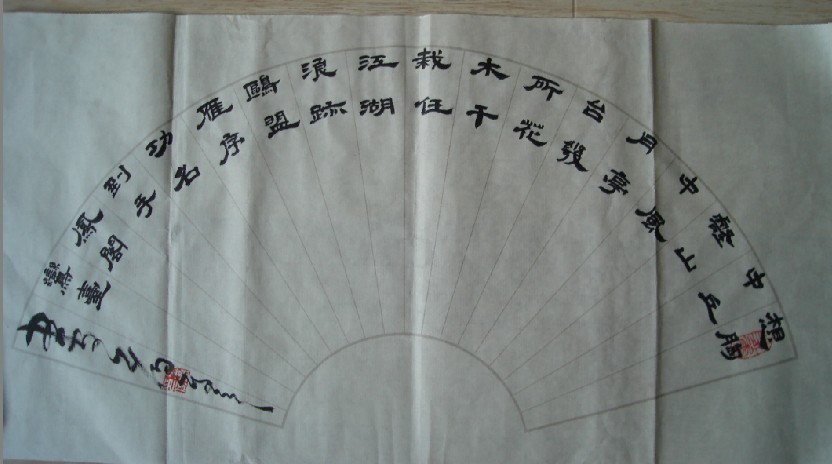 想胸
中丘
壑山
中風
月亭
台幾
所花
木千
栽任
江湖
浪跡
鷗盟
雁序
功名
到手
鳳閣
鸞臺